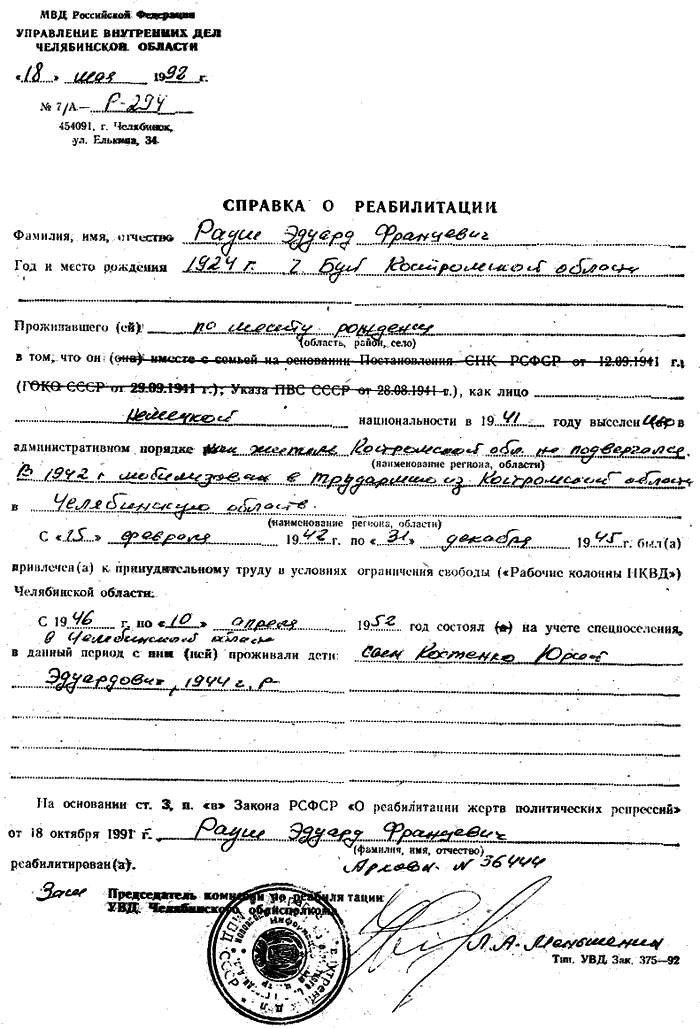 МВД Российской Федерации
УПРАВЛЕНИЕ ВНУТРЕННИХ ДЕЛ
ЧЕЛЯБИНСКОЙ ОБЛАСТИ
«18» мая 1992 г.
№ 7/А— Р-294
454091, г. Челябинск,
ул. Елькина, 34.
СПРАВКА О РЕАБИЛИТАЦИИ
Фамилия, имя, отчество Рауш Эдуард Францевич
Год и место рождения 1924 г. г Буй Костромской области
Проживавшего (ей) по месту рождения
(область, район, село)
в том, что он (она) вместе с семьей на основании Постановления СНК РСФСР от 12.09.1941 г.;
(ГОКО СССР от 29.09.1941 г.); Указа ПВС СССР от 28.08.1941 г.), как лицо
немецкой национальности в 1941 году выселен в
административном порядке как житель Костромской обл. не подвергался.
(наименование региона, области)
В 1942 г мобилизован в трудармию из Костромской области
в Челябинскую область.
(наименование региона, области)
С «15» февраля 1942 г. по «31» декабря 1945 г. был(а)
привлечен(а) к принудительному труду в условиях ограничения свободы («Рабочие колонны НКВД»)
Челябинской области.
С 1946 г. по «10» апреля 1952 год состоял (а) на учете спецпоселения,
в Челябинской области
в данный период с ним (ней) проживали дети: сын Костенко Юрий
Эдуардович, 1944 г. р
На основании ст. 3, п. «в» Закона РСФСР «О реабилитации жертв политических репрессий»
от 18 октября 1991 г. Рауш Эдуард Францевич
(фамилия, имя, отчество)
реабилитирован(а). Архивн. N 36444
Зам Председатель комиссии по реабилитации
УВД Челябинского облисполкома
МВД СССР
Л.А. Меньшенин
Тип. УВД. Зак. 375—92